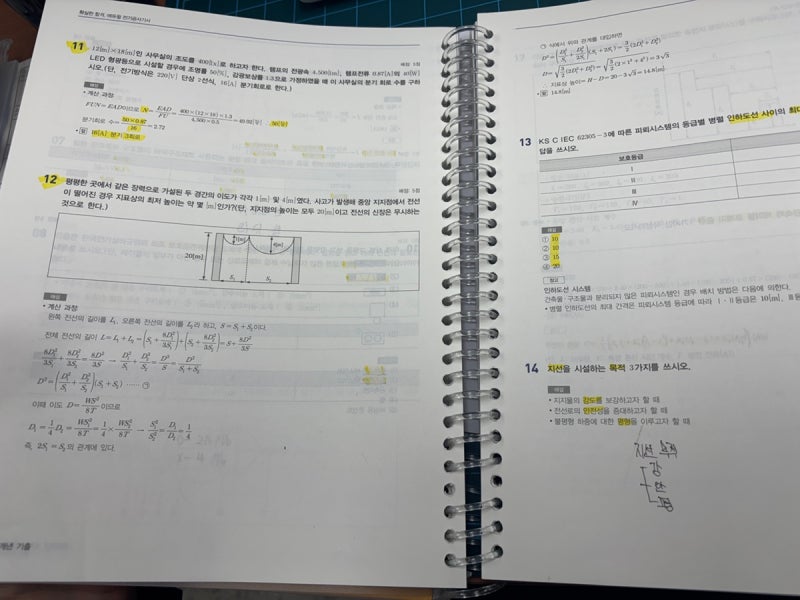 확실한 합격, 에듀윌 전기공사기사
11 12[m]×18[m]인 사무실의 조도를 400[lx]로 하고자 한다. 램프의 전광속 4,500[lm], 램프전류 0.87[A]의 40[W]
LED 형광등으로 시설할 경우에 조명률 50[%], 감광보상률 1.3으로 가정하였을 때 이 사무실의 분기 회로 수를 구하
시오.(단, 전기방식은 220[V] 단상 2선식, 16[A] 분기회로로 한다.)
배점: 5점
해설
• 계산 과정
FUN=EAD이므로 N=EAD/FU=400×(12×18)×1.3/4,500×0.5=49.92[등] ∴50[등]
분기회로 수=50×0.87/16=2.72
• 답 16[A] 분기 3회로
12 평평한 곳에서 같은 장력으로 가설된 두 경간의 이도가 각각 1[m] 및 4[m]였다. 사고가 발생해 중앙 지지점에서 전선
이 떨어진 경우 지표상의 최저 높이는 약 몇 [m]인가?(단, 지지점의 높이는 모두 20[m]이고 전선의 신장은 무시하는
것으로 한다.)
배점: 5점
20[m]
1[m]
4[m]
S₁
S₂
해설
• 계산 과정
왼쪽 전선의 길이를 L₁, 오른쪽 전선의 길이를 L₂라 하고, S=S₁+S₂이다.
전체 전선의 길이 L=L₁+L₂=(S₁+8D₁²/3S₁)+(S₂+8D₂²/3S₂)=S+8D²/3S
8D₁²/3S₁+8D₂²/3S₂=8D²/3S → D₁²/S₁+D₂²/S₂=D²/S=D²/S₁+S₂
D²=(D₁²/S₁+D₂²/S₂)(S₁+S₂) …… ㉠
이때 이도 D=WS²/8T이므로
D₁=1/4D₂=WS₁²/8T=1/4×WS₂²/8T → S₁²/S₂²=D₁/D₂=1/4
즉, 2S₁=S₂의 관계에 있다.
개년 기출
㉠ 식에서 위의 관계를 대입하면
D²=(D₁²/S₁+D₂²/2S₁)(S₁+2S₁)=3/2(2D₁²+D₂²)
D=√3/2(2D₁²+D₂²)=√3/2(2×1²+4²)=3√3
∴ 지표상 높이=H−D=20−3√3=14.8[m]
• 답 14.8[m]
13 KS C IEC 62305-3에 따른 피뢰시스템의 등급별 병렬 인하도선 사이의 최대
답을 쓰시오.
보호등급
Ⅰ
Ⅱ
Ⅲ
Ⅳ
해설
① 10
② 10
③ 15
④ 20
참고
인하도선 시스템
건축물·구조물과 분리되지 않은 피뢰시스템인 경우 배치 방법은 다음에 의한다.
• 병렬 인하도선의 최대 간격은 피뢰시스템 등급에 따라 Ⅰ·Ⅱ등급은 10[m], Ⅲ등
14 지선을 시설하는 목적 3가지를 쓰시오.
해설
• 지지물의 강도를 보강하고자 할 때
• 전선로의 안전성을 증대하고자 할 때
• 불평형 하중에 대한 평형을 이루고자 할 때
지선 목적
강
안
평